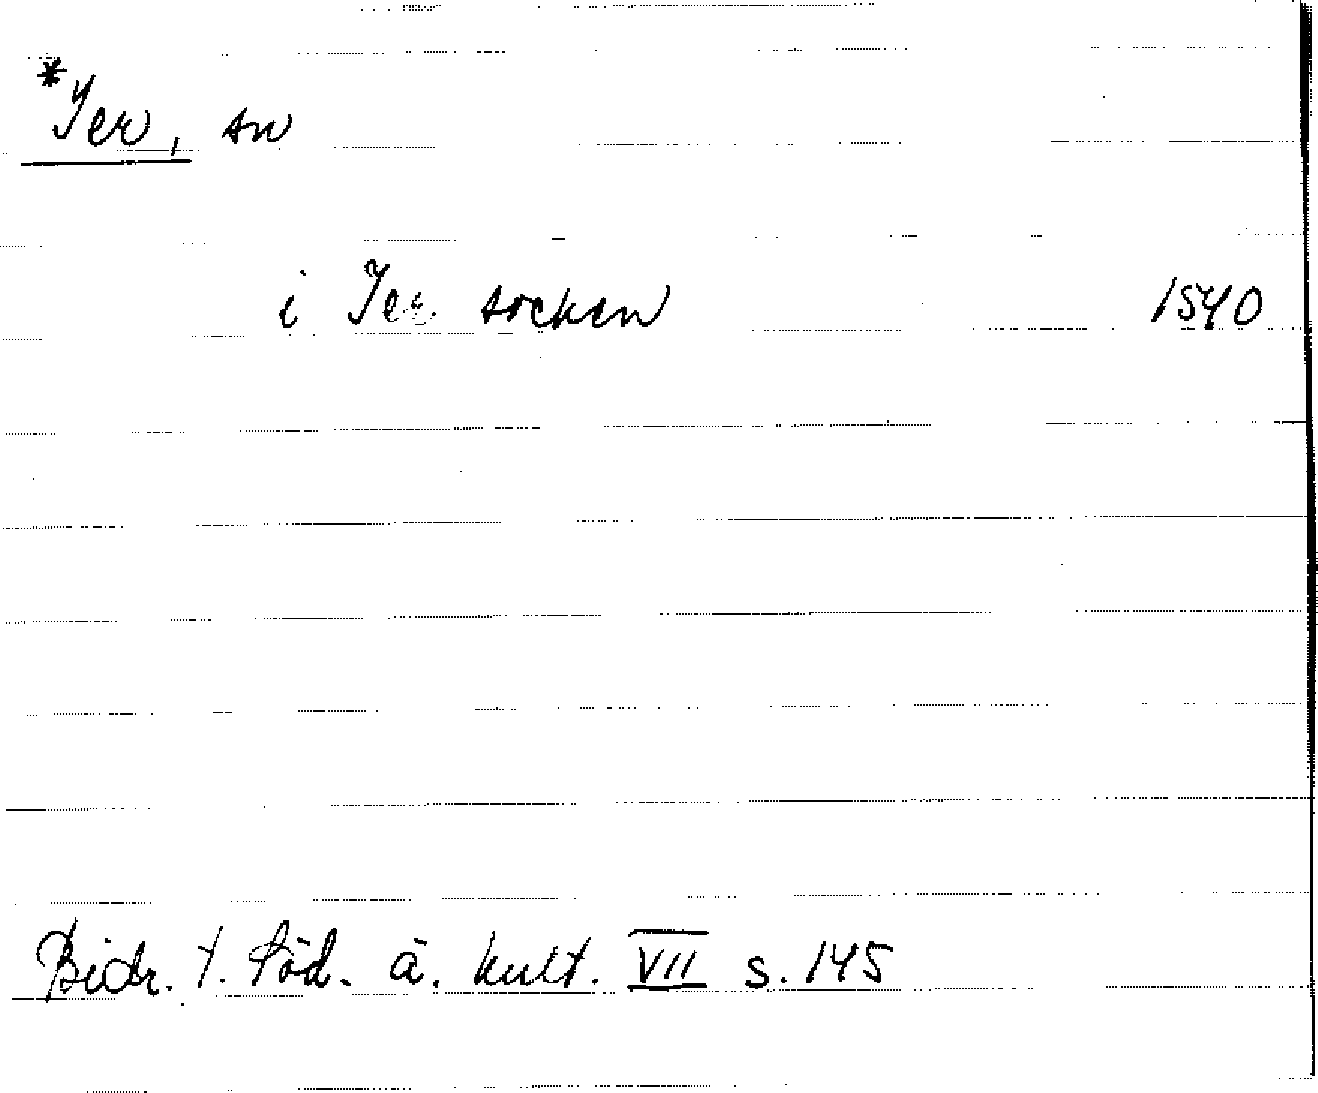 *Jer, sn
i Jer socken 1540
Bidr. t. Söd. ä. kult. VII s. 145